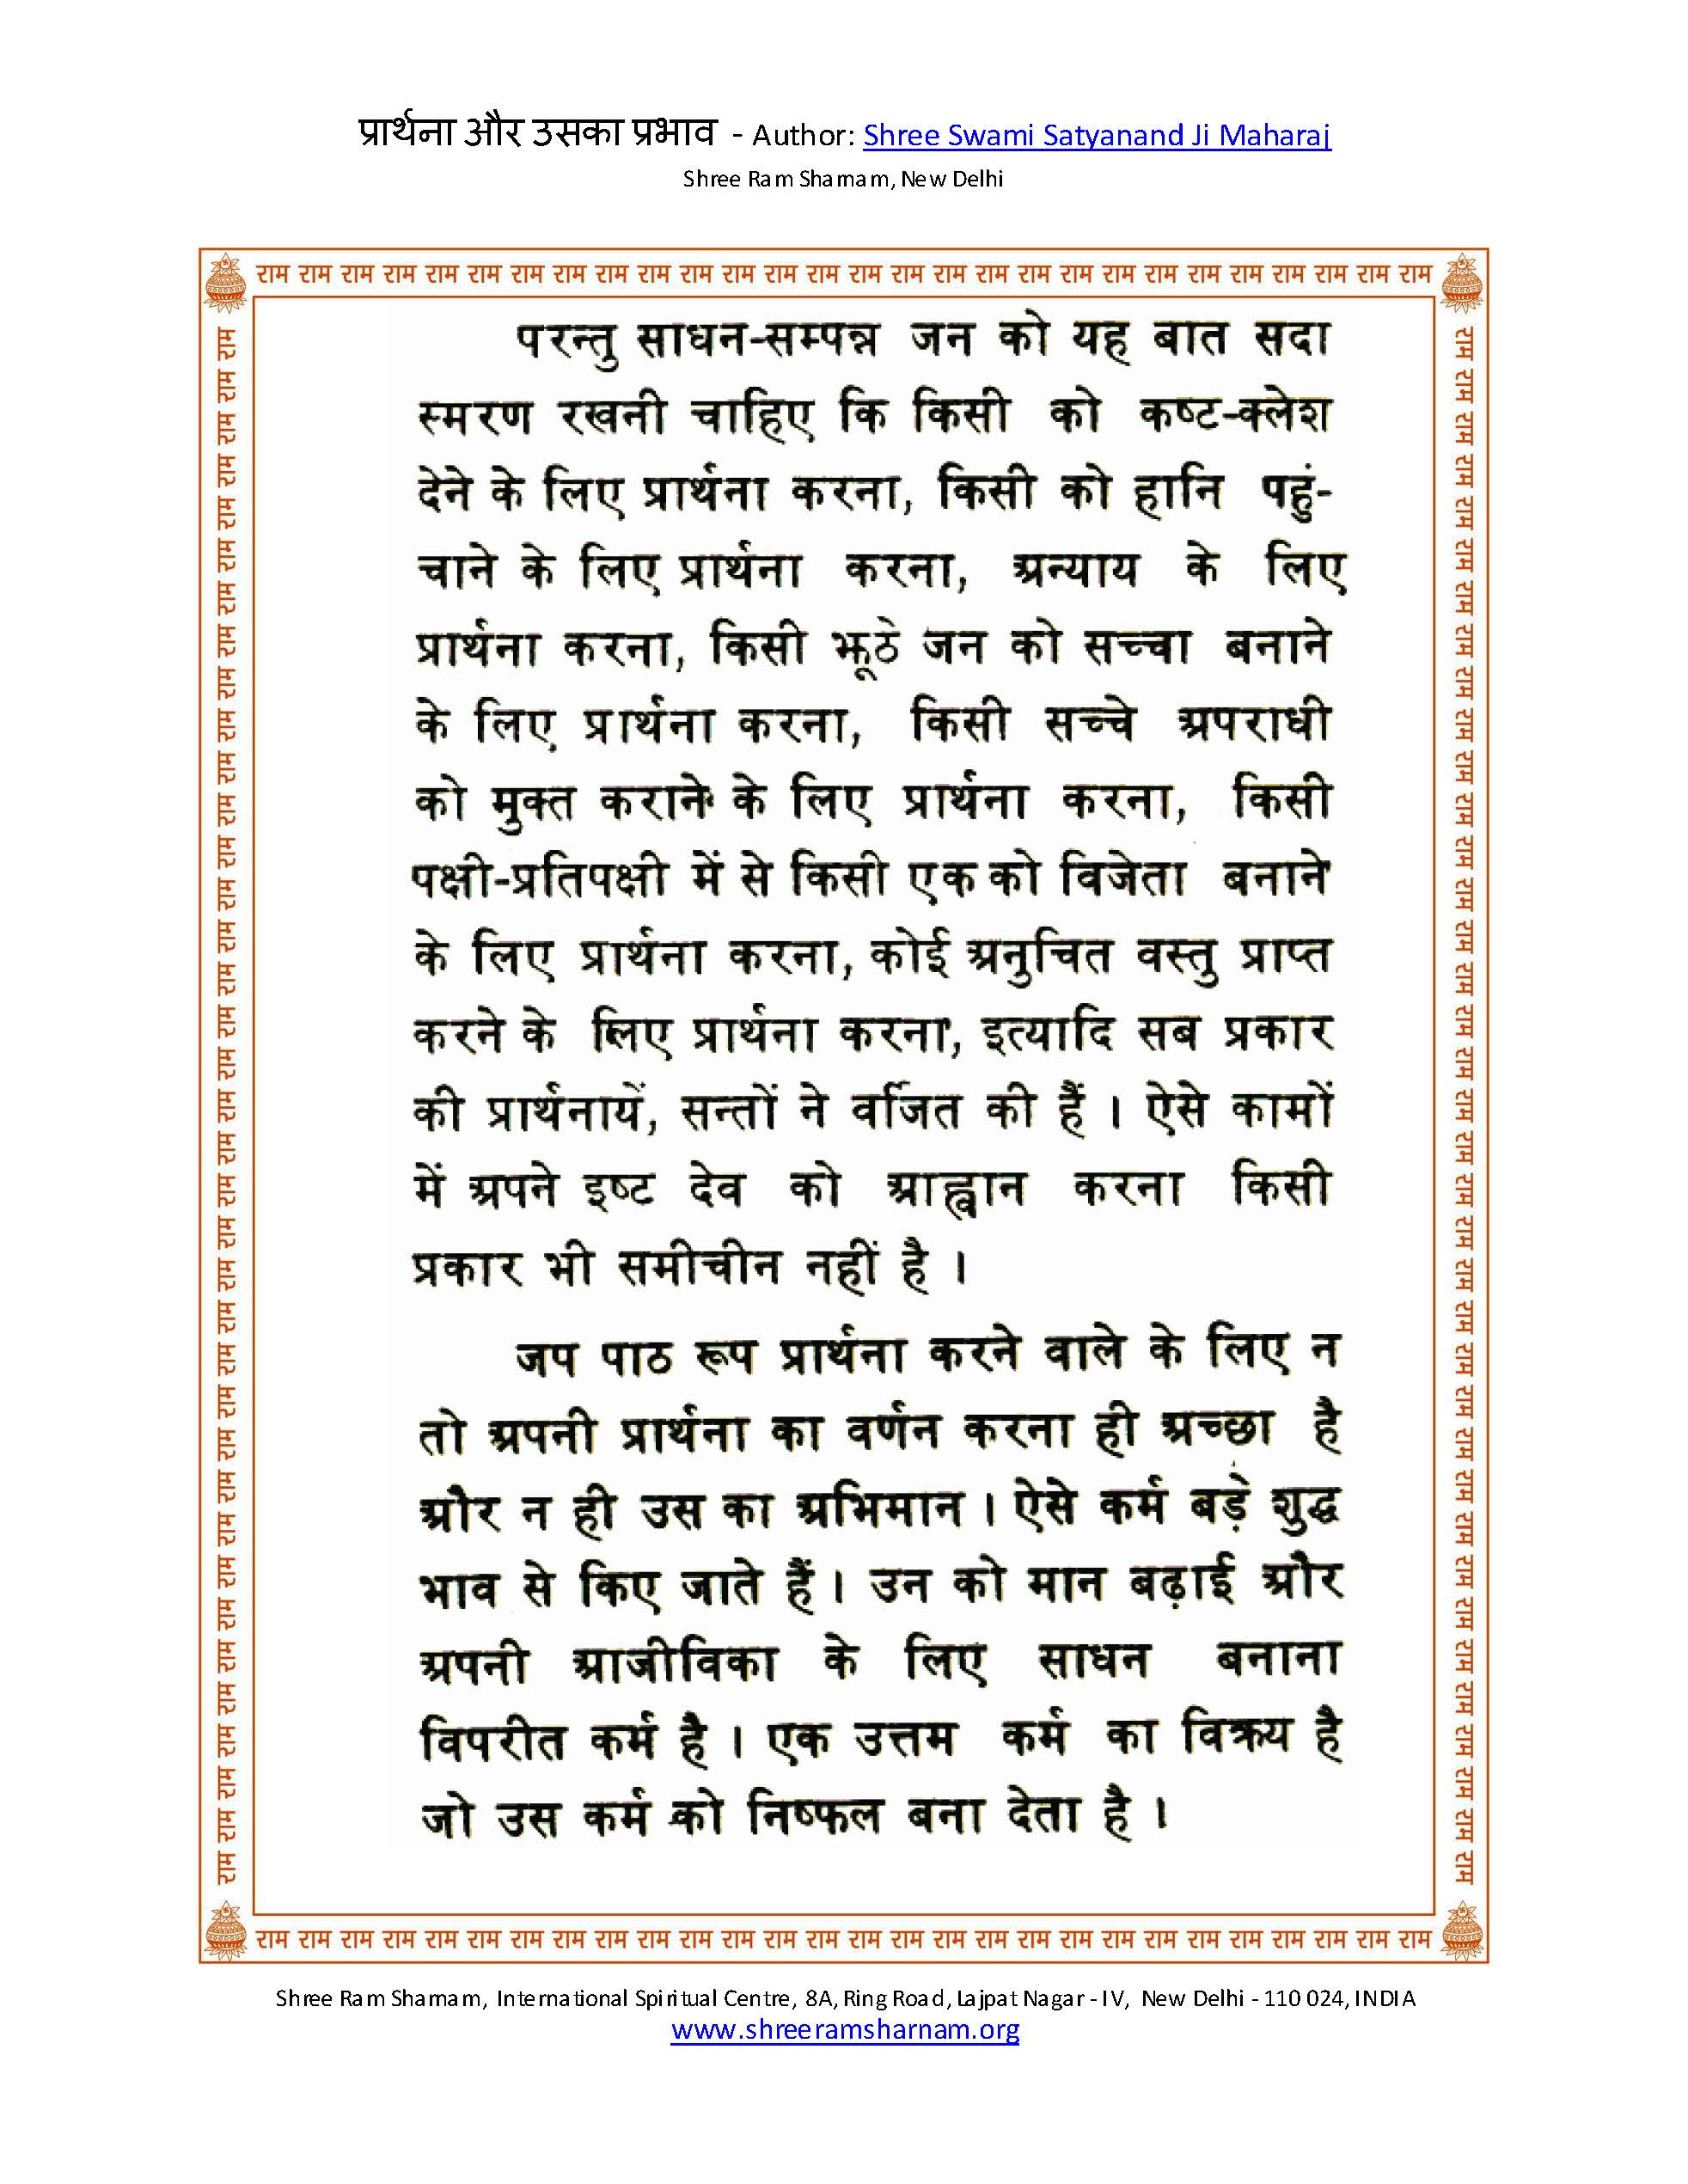 प्रार्थना और उसका प्रभाव - Author: Shree Swami Satyanand Ji Maharaj
Shree Ram Sharnam, New Delhi
राम राम राम राम राम राम राम राम राम राम राम राम राम राम राम राम राम राम राम राम राम राम राम राम राम राम राम राम
परन्तु साधन-सम्पन्न जन को यह बात सदा
स्मरण रखनी चाहिए कि किसी को कष्ट-क्लेश
देने के लिए प्रार्थना करना, किसी को हानि पहुं-
चाने के लिए प्रार्थना करना, अन्याय के लिए
प्रार्थना करना, किसी झूठे जन को सच्चा बनाने
के लिए प्रार्थना करना, किसी सच्चे अपराधी
को मुक्त कराने के लिए प्रार्थना करना, किसी
पक्षी-प्रतिपक्षी में से किसी एक को विजेता बनाने
के लिए प्रार्थना करना, कोई अनुचित वस्तु प्राप्त
करने के लिए प्रार्थना करना, इत्यादि सब प्रकार
की प्रार्थनायें, सन्तों ने वर्जित की हैं । ऐसे कामों
में अपने इष्ट देव को आह्वान करना किसी
प्रकार भी समीचीन नहीं है ।
जप पाठ रूप प्रार्थना करने वाले के लिए न
तो अपनी प्रार्थना का वर्णन करना ही अच्छा है
और न ही उस का अभिमान । ऐसे कर्म बड़े शुद्ध
भाव से किए जाते हैं । उन को मान बढ़ाई और
अपनी आजीविका के लिए साधन बनाना
विपरीत कर्म है । एक उत्तम कर्म का विक्रय है
जो उस कर्म को निष्फल बना देता है ।
राम राम राम राम राम राम राम राम राम राम राम राम राम राम राम राम राम राम राम राम राम राम राम राम राम राम राम राम
Shree Ram Sharnam, International Spiritual Centre, 8A, Ring Road, Lajpat Nagar - IV, New Delhi - 110 024, INDIA
www.shreeramsharnam.org